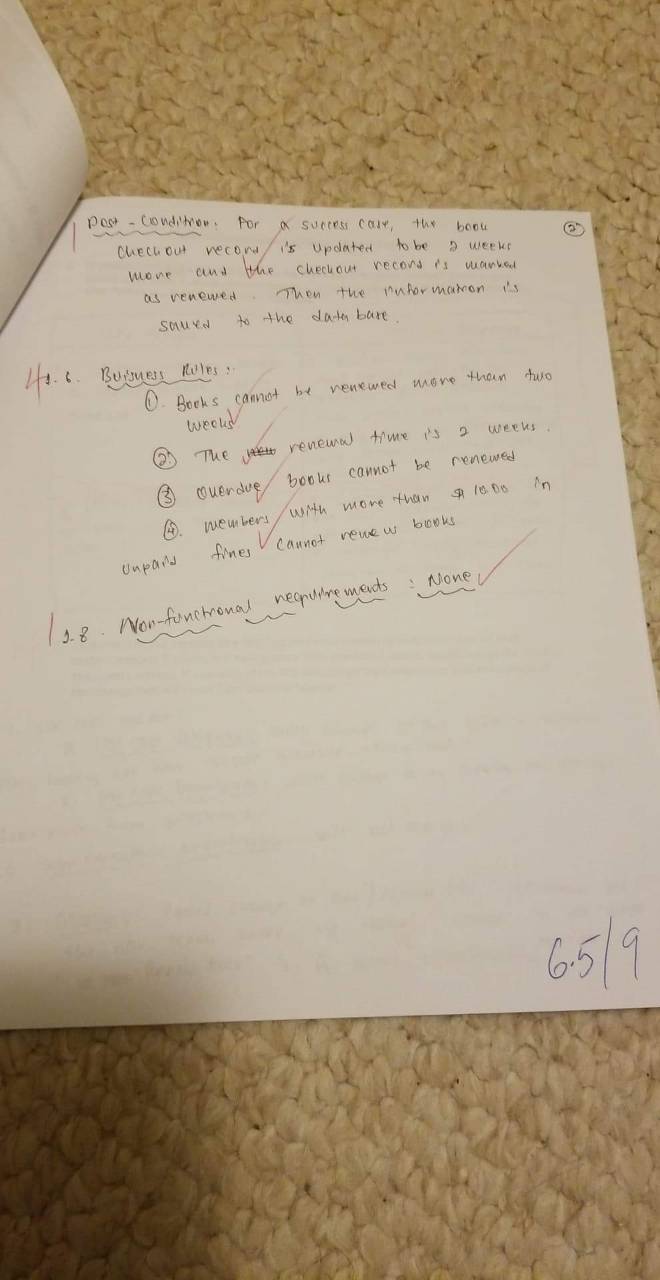 ②
1 Post-Condition: For a success case, the book
checkout record is updated to be 2 weeks
more and the checkout record is marked
as renewed. Then the information is
saved to the data base.
4 1.6. Buisness Rules:
①. Books cannot be renewed more than two
weeks
② The renewal time is 2 weeks.
③ Overdue books cannot be renewed
④. members with more than $ 10.00 in
unpaid fines cannot renew books
1 1.8. Non-functional requirements: None
6.5/9